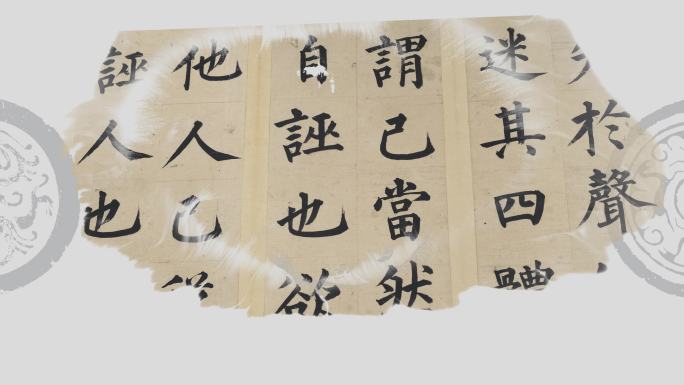 於聲
迷其四體
謂己當然
自誣也欲
他人己從
誣人也